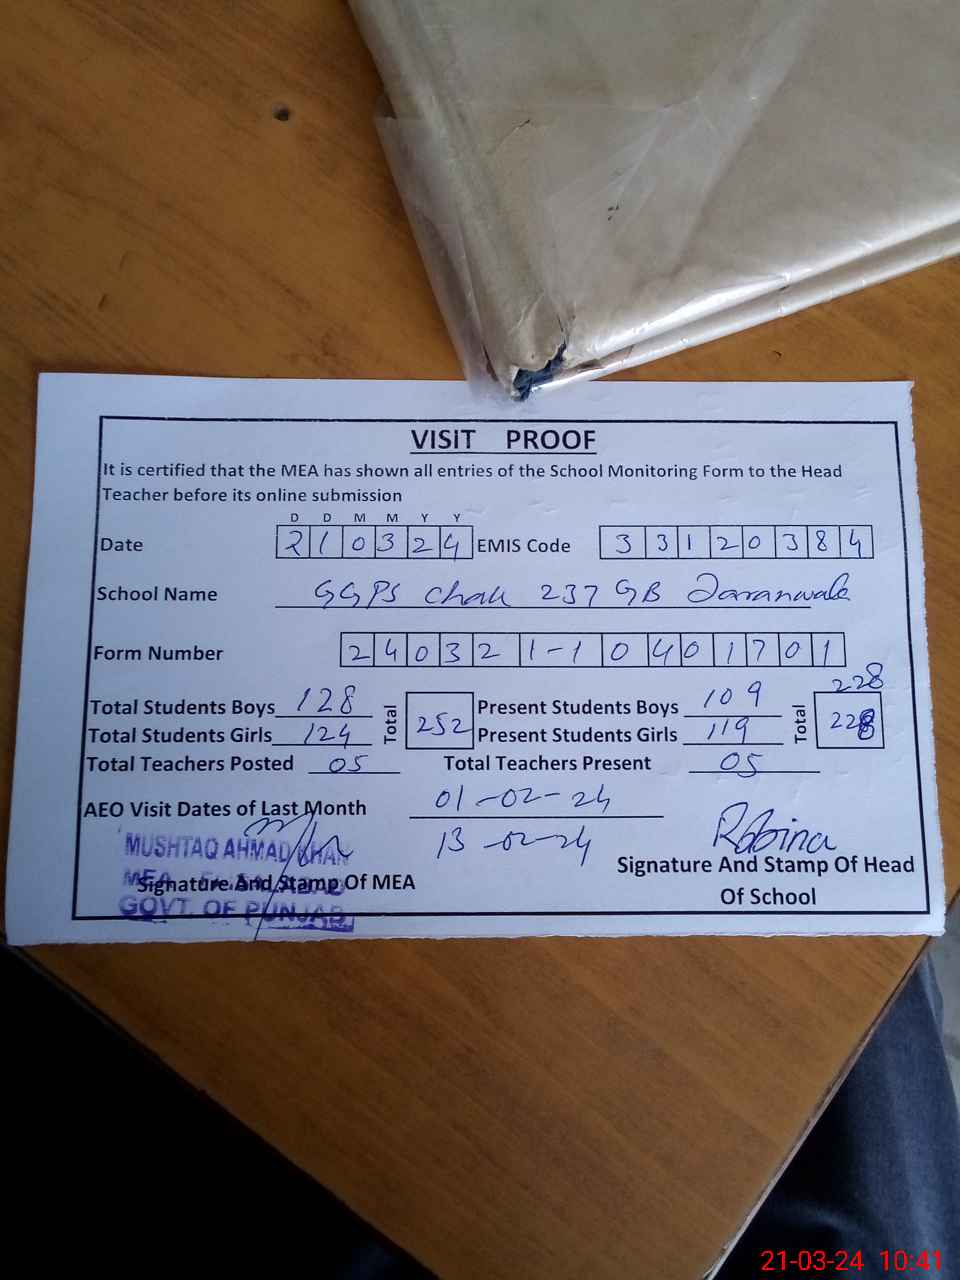 VISIT PROOF
It is certified that the MEA has shown all entries of the School Monitoring Form to the Head
Teacher before its online submission
D D M M Y Y
Date 210324 EMIS Code 33120384
School Name GGPS Chak 237 GB Jaranwala
Form Number 240321-10401701
228
Total Students Boys 128 Total 252 Present Students Boys 109 Total 228
Total Students Girls 124 Present Students Girls 119
Total Teachers Posted 05 Total Teachers Present 05
AEO Visit Dates of Last Month 01-02-24
13-02-24
Robina
MUSHTAQ AHMAD KHAN
MEA FAISALABAD
GOVT. OF PUNJAB
Signature And Stamp Of MEA
Signature And Stamp Of Head
Of School
21-03-24 10:41